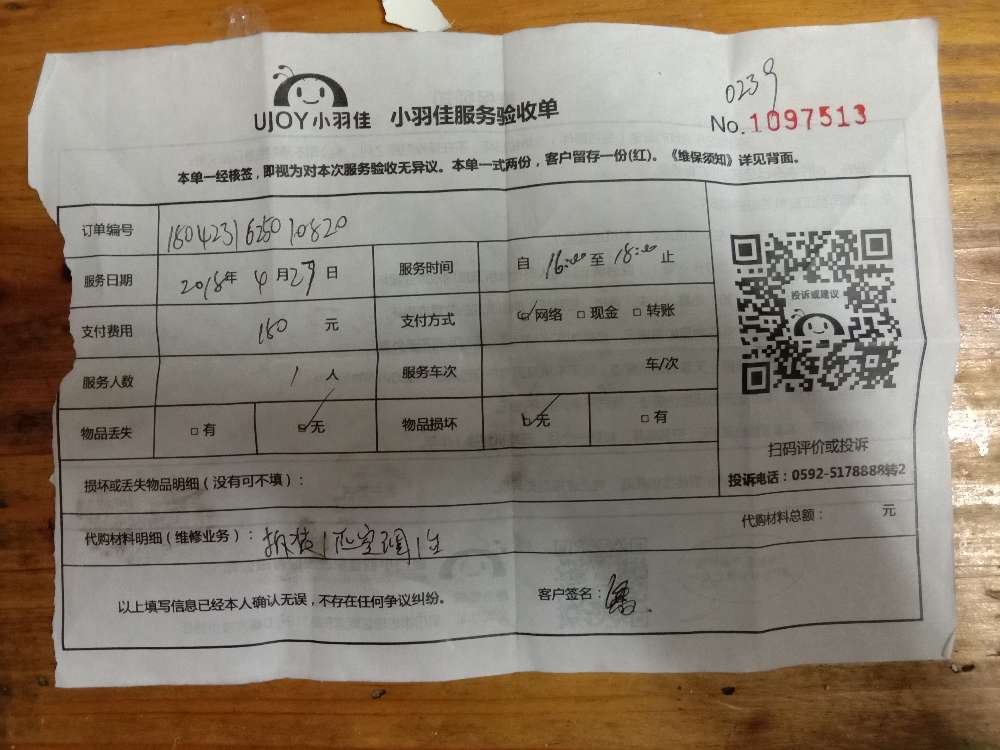 0239
UJOY小羽佳 小羽佳服务验收单 No.1097513
本单一经核签，即视为对本次服务验收无异议。本单一式两份，客户留存一份(红)。《维保须知》详见背面。
订单编号 1804231625010820
服务日期 2018年4月29日 服务时间 自 16:00 至 18:00 止
支付费用 180 元 支付方式 ☑网络 □现金 □转账
服务人数 1 人 服务车次 车/次
物品丢失 □有 ☑无 物品损坏 ☑无 □有
投诉或建议
扫码评价或投诉
投诉电话：0592-5178888转2
损坏或丢失物品明细（没有可不填）：
代购材料明细（维修业务）： 拆装1匹空调1台 代购材料总额： 元
以上填写信息已经本人确认无误，不存在任何争议纠纷。 客户签名：